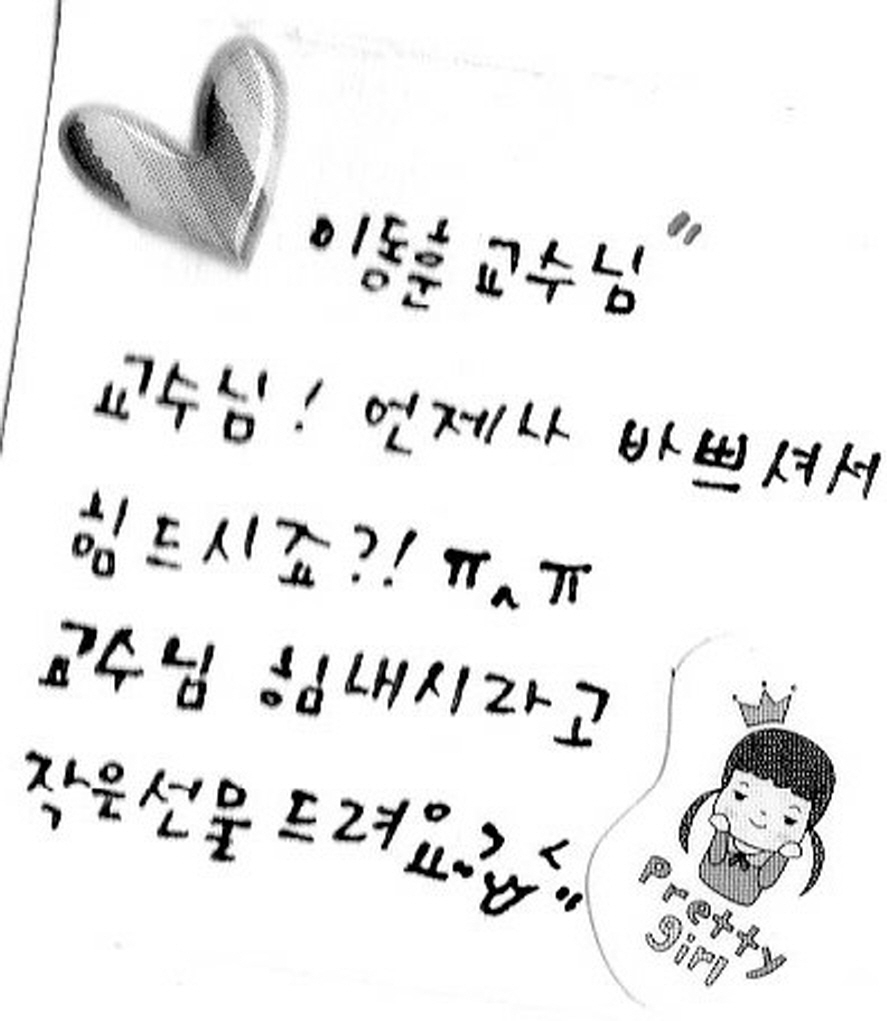 이동훈 교수님"
교수님! 언제나 바쁘셔서
힘드시죠?! ㅠ^ㅠ
교수님 힘내시라고
작은선물 드려요~
Pretty
girl